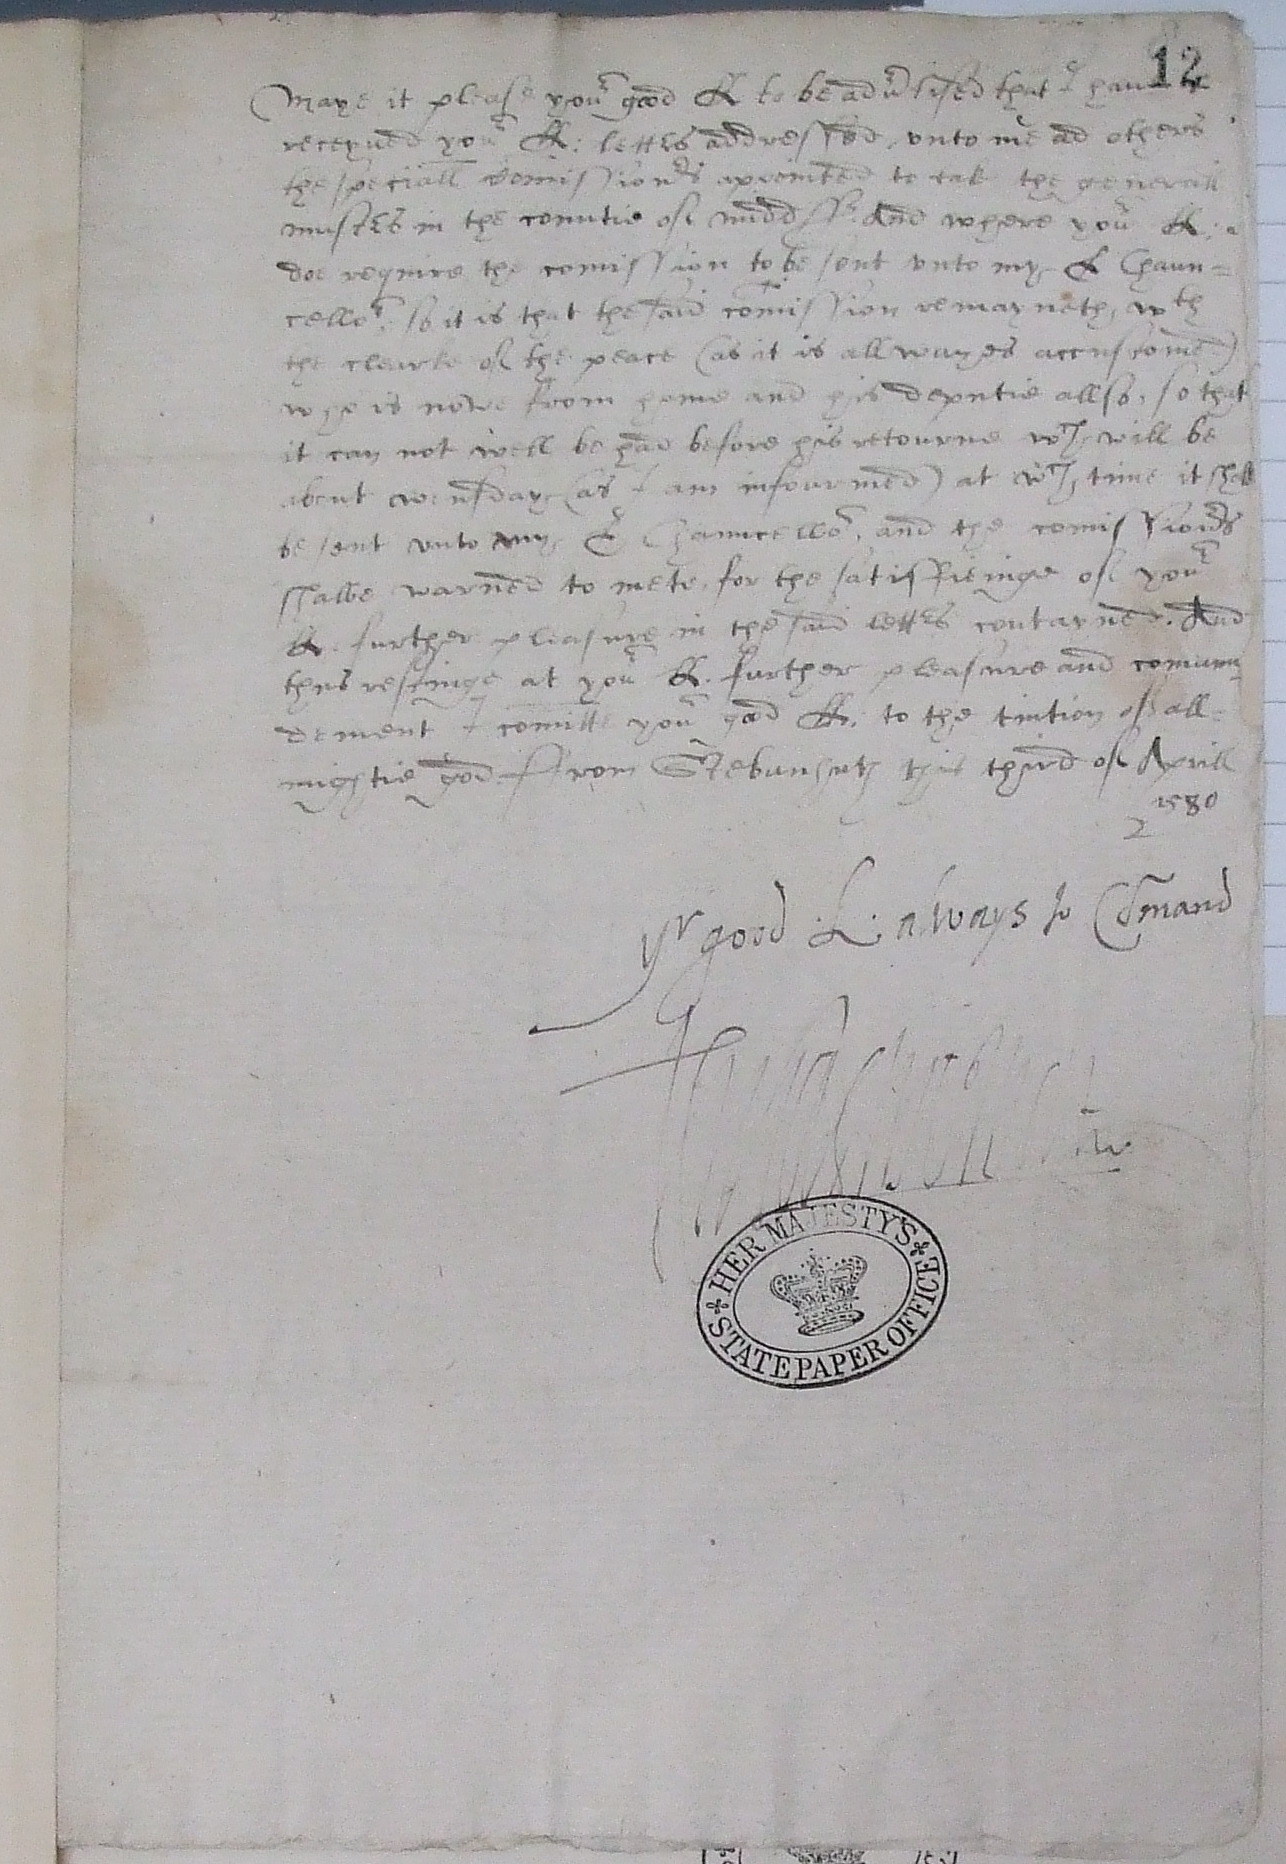 12
Maye it please your good LL to be adu'tised that I haue
receyued your LL: lett'es addressed vnto me and others
the speciall comission's apointed to take the generall
musters in the countie of Midd'. And where your LL:
doe require the comission to be sent vnto my L Chaun=
cellor, so it is that the said comission remayneth wth
the clearke of the peace (as it is allwayes accustomed)
who is nowe from home and his deputie allso, so that
it can not well be had before his retourne wch will be
about wensday (as I am infourmed) at wch time it shall
be sent vnto my L Chauncellor, and the comission's
shalbe warned to mete, for the satisfieinge of your
LL. further pleasure in the said lett'es contayned. And
thus restinge at your LL. further pleasure and comaun
dement I comitte your good LL: to the tuition of all=
mightie god. From Stebunhuth this third of Aprill
1580
yr good .L. always to Comand
HER MAJESTY'S
STATE PAPER OFFICE